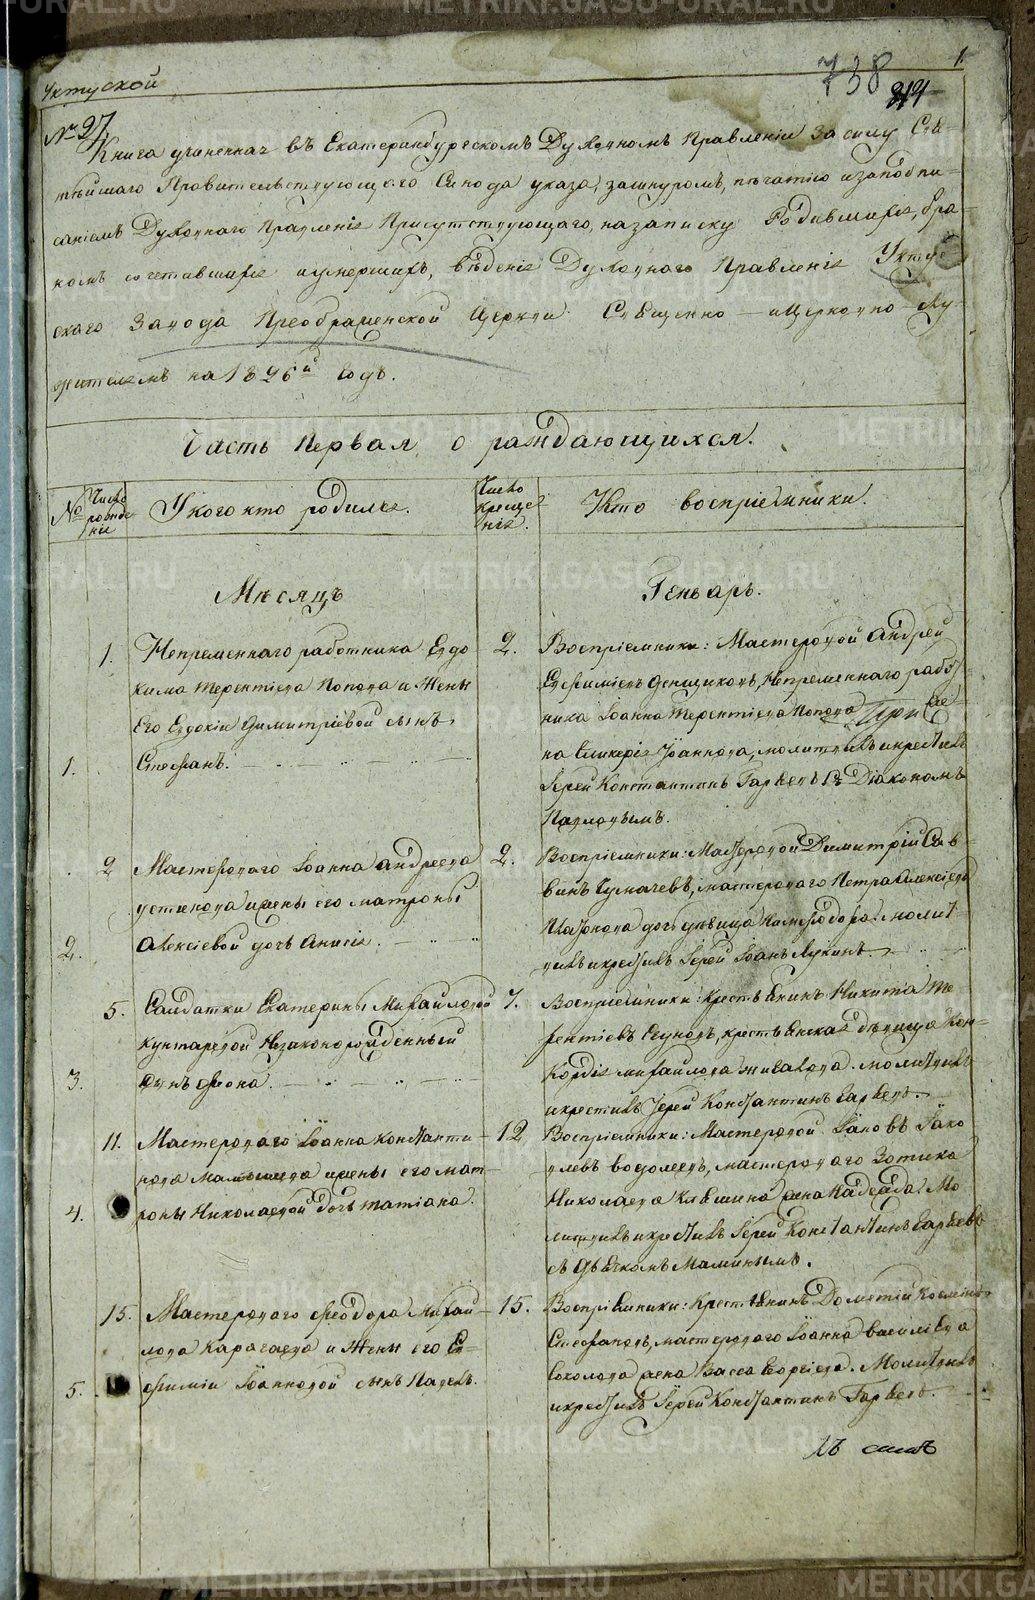 Уктуской
738
1
№ 27
Книга учиненная въ Екатеринбургскомъ Духовномъ Правленіи за силу Свя-
тѣйшаго Правительствующаго Синода указа, за шнуромъ, печатію и за подпи-
саніемъ Духовнаго Правленія Присутствующаго, на записку Родившихся, бра-
комъ сочетавшихся и умершихъ, вѣденія Духовнаго Правленія Укту-
скаго Завода Преображенской Церкви Священно-Церковно-слу-
жителемъ на 1826й годъ.
Часть Первая о раждающихся.
№
Число рожденія
У кого кто родился.
Число крещенія.
Кто воспріемники.
Мѣсяцъ
Генварь.
1.
1.
Непременнаго работника Евдо
кима Терентіева Попова и Жены
Его Евдокіи Димитріевой сынъ
Стефанъ.
2.
Воспріемники: Мастеровой Андрей
Евфиміевъ Денщиковъ, Непременнаго рабо
ника Іоанна Терентіева Попова жена
Гликерія Іоаннова, молитвилъ и крестилъ
Іерей Константинъ Гаряевъ съ Діакономъ
Павловымъ.
2.
2
Мастероваго Іоанна Андреева
Устинова и жены его Матроны
Алексіевой дочь Анисія.
2.
Воспріемники: Мастеровой Димитрій Сав
винъ Чумачевъ, мастероваго Петра Алексіева
дочь девица молит
вилъ и крестилъ Іерей Іоанъ Лукинъ.
3.
5.
Салдатки Екатерины Михайловой
Кунгаревой Незаконорожденный
сынъ Фока.
7.
Воспріемники: Крестьянинъ Никита Те
рентіевъ крестьянская дѣвица Кон-
кордія Михайлова молитвилъ
и крестилъ Іерей Константинъ Гаряевъ.
4.
11.
Мастероваго Іоанна Константи-
нова Малышева и жены его Мат-
роны Николаевой дочь Татіана.
12
Воспріемники: Мастеровой Іаковъ Іако
влевъ Водолеевъ, мастероваго Зотика
Николаева Клѣшина жена Надежда. Мо
литвилъ и крестилъ Іерей Константинъ Гаряевъ
съ дьячкомъ Маминымъ.
5.
15.
Мастероваго Феодора Михай-
лова Карагаева и Жены его Ев-
фиміи Іоанновой сынъ Павелъ.
15.
Воспріемники: Крестьянинъ Дометій Космінъ
Стефановъ, мастероваго Іоанна Василіева
Соколова жена Васса Георгіева. Молитвилъ
и крестилъ Іерей Константинъ Гаряевъ.
METRIKI.GASO-URAL.RU